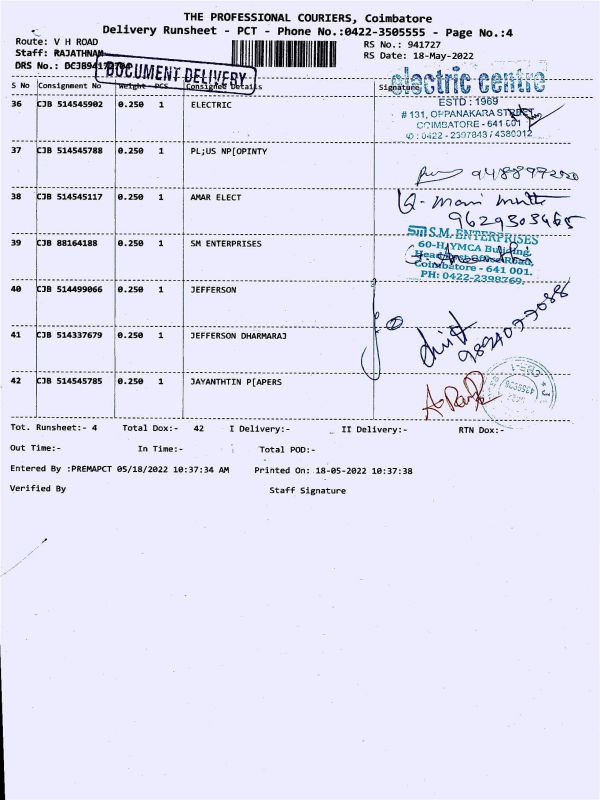 THE PROFESSIONAL COURIERS, Coimbatore
Delivery Runsheet - PCT - Phone No.:0422-3505555 - Page No.:4
Route: V H ROAD
RS No.: 941727
Staff: RAJATHNAM
RS Date: 18-May-2022
DRS No.:
DOCUMENT DELIVERY
S No Consignment No Weight PCS Consignee Details Signature
electric centre
ESTD : 1969
# 131, OPPANAKARA STREET
COIMBATORE - 641 001
✆ : 0422 - 2397843 / 4380012
36 CJB 514545902 0.250 1 ELECTRIC
37 CJB 514545788 0.250 1 PL;US NP[OPINTY
38 CJB 514545117 0.250 1 AMAR ELECT
9629303465
39 CJB 88164188 0.250 1 SM ENTERPRISES
S.M. ENTERPRISES
60-H, YMCA Building,
Coimbatore - 641 001.
PH: 0422-2398769.
40 CJB 514499066 0.250 1 JEFFERSON
41 CJB 514337679 0.250 1 JEFFERSON DHARMARAJ
42 CJB 514545785 0.250 1 JAYANTHTIN P[APERS
Tot. Runsheet:- 4 Total Dox:- 42 I Delivery:- II Delivery:- RTN Dox:-
Out Time:- In Time:- Total POD:-
Entered By :PREMAPCT 05/18/2022 10:37:34 AM Printed On: 18-05-2022 10:37:38
Verified By Staff Signature